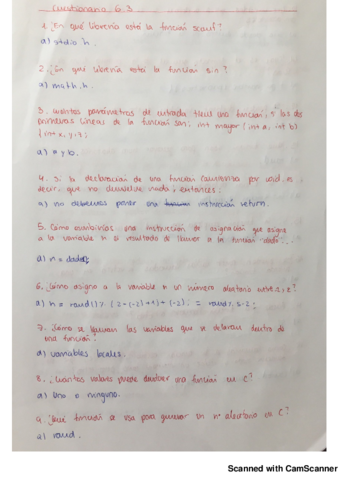 Cuestionario 6.3
1. ¿En qué librería está la función scanf?
a) stdio.h.
2. ¿En qué librería está la función sin?
a) math.h.
3. cuantos parámetros de entrada tiene una función, si las dos
primeras líneas de la función son: int mayor (int a, int b)
{ int x, y, z;
a) a y b.
4. Si la declaración de una función comienza por void, es
decir, que no devuelve nada, entonces:
a) no debemos poner una instrucción return.
5. Cómo escribirías una instrucción de asignación que asigne
a la variable n el resultado de llamar a la función dado...
a) n = dado();
6. ¿Cómo asigno a la variable n un número aleatorio entre
a) n = rand()%
7. ¿Cómo se llaman las variables que se declaran dentro de
una función?
a) variables locales.
8. ¿cuantos valores puede devolver una función en C?
a) Uno o ninguno.
9. ¿Qué función se usa para generar un nº aleatorio en C?
a) rand.
Scanned with CamScanner